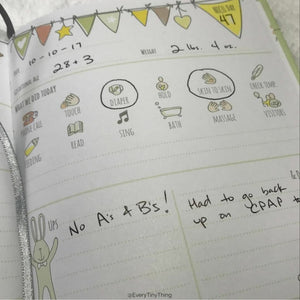 NICU DAY
47
DATE 10-10-17 WEIGHT 2 lbs. 4 oz.
GESTATIONAL AGE 28+3
WHAT WE DID TODAY
TOUCH
DIAPER
HOLD
SKIN TO SKIN
CHECK TEMP.
PHONE CALL
SING
BATH
MASSAGE
VISITORS
FEEDING
READ
UPS
No A's & B's!
Had to go back
up on CPAP
@EveryTinyThing